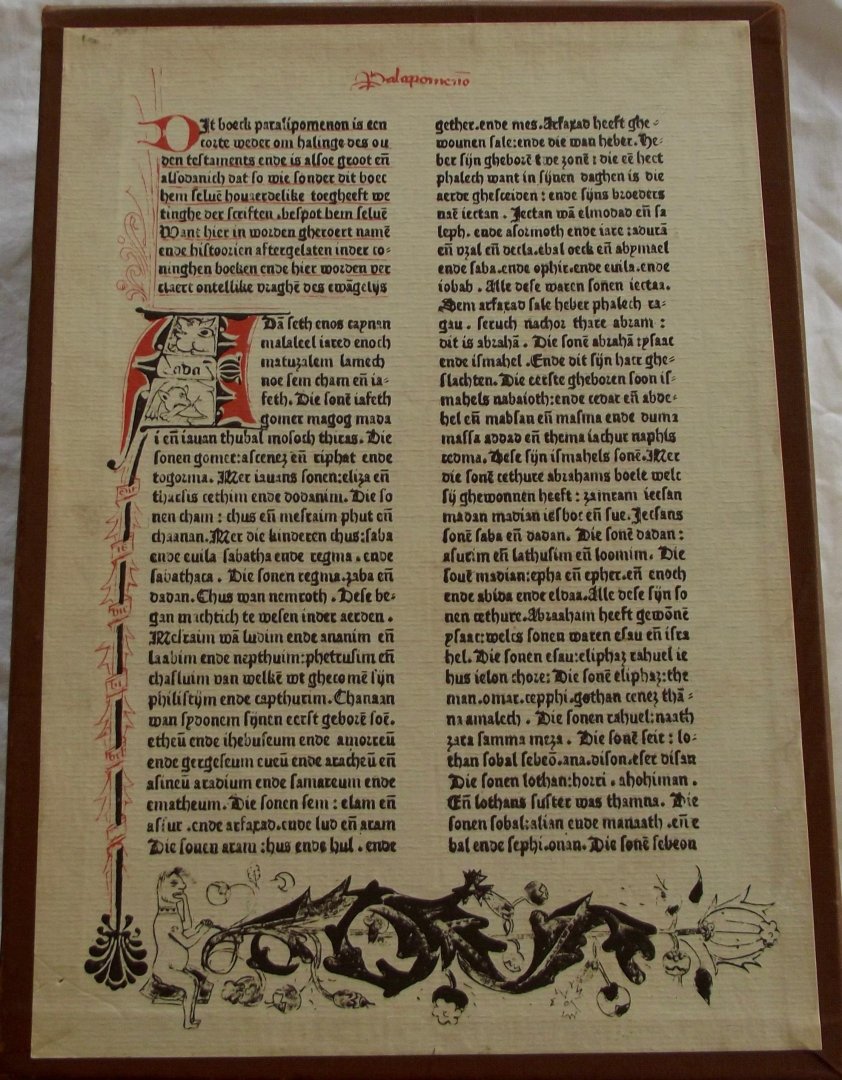 Palapomeno
DJt boeck paralipomenon is een
corte weder om halinge des ou
den testaments ende is alsoe groot en̄
alsodanich dat so wie sonder dit boec
hem seluē houaerdelike toegheeft we
tinghe der scriften .bespot hem seluē
Want hier in worden gheroert namē
ende histoorien aftergelaten inder co-
ninghen boeken ende hier worden ver
claert ontellike vraghē des ewāgelijs
ADā seth enos caynan
malaleel iared enoch
matuzalem lamech
noe sem cham en̄ ia-
feth. Die sonē iafeth
gomer magog mada
i en̄ iauan thubal mosoch thiras. Die
sonen gomer:ascenez en̄ riphat ende
togorma. Mer iauans sonen:eliza en̄
tharsis cethim ende dodanim. Die so
nen cham : chus en̄ mesraim phut en̄
chaanan. Mer die kinderen chus:saba
ende euila sabatha ende regma . ende
sabathaca . Die sonen regma.zaba en̄
dadan. Chus wan nemroth . Dese be-
gan machtich te wesen inder aerden .
Mesraim wā ludim ende ananim en̄
laabim ende nepthuim:phetrusim en̄
chasluim van welkē wt ghecomē sijn
philistijm ende capthurim. Chanaan
wan sydonem sijnen eerst geborē soē.
etheū ende ihebuseum ende amorreū
ende gergeseum eueū ende aracheū en̄
asineū aradium ende samareum ende
ematheum. Die sonen sem : elam en̄
assur .ende arfaxad.ende lud en̄ aram
Die sonen aram :hus ende hul . ende
gether.ende mes.Arfaxad heeft ghe-
wounen sale:ende die wan heber. He-
ber sijn gheborē twe zonē : die eē heet
phalech want in sijnen daghen is die
aerde ghesceiden : ende sijns broeders
naē iectan . Jectan wā elmodad en̄ sa
leph. ende asormoth ende iare :adurā
en̄ vzal en̄ decla.ebal oeck en̄ abymael
ende saba.ende ophir.ende euila.ende
iobab . Alle dese waren sonen iectaa.
Sem arfaxad sale heber phalech ra-
gau . seruch nachor thare abram :
dit is abrahā . Die sonē abrahā :ysaac
ende ismahel .Ende dit sijn haer ghe-
slachten. Die eerste gheboren soon is-
mahels nabaioth:ende cedar en̄ abde-
hel en̄ mabsan en̄ masma ende duma
massa addad en̄ thema iachur naphis
cedma. Dese sijn ismahels sonē. Mer
die sonē cethure abrahams boele welc
sij ghewonnen heeft : zamram iecsan
madan madian iesboc en̄ sue. Jecsans
sonē saba en̄ dadan. Die sonē dadan:
asurim en̄ lathusim en̄ loomim. Die
souē madian:epha en̄ epher.en̄ enoch
ende abida ende eldaa.Alle dese sijn so
nen cethure. Abraaham heeft gewōnē
ysaac:welcs sonen waren esau en̄ isra
hel. Die sonen esau:eliphaz rahuel ie
hus ielon chore: Die sonē eliphaz:the
man.omar.cepphi.gethan cenez thā-
na amalech . Die sonen rahuel:naath
zara samma meza . Die sonē seir : lo-
than sobal sebeō.ana.dison.eser disan
Die sonen lothan:horri . ahohiman .
En̄ lothans suster was thamna. Die
sonen sobal:alian ende manaath .en̄ e
bal ende sephi.onan. Die sonē sebeon